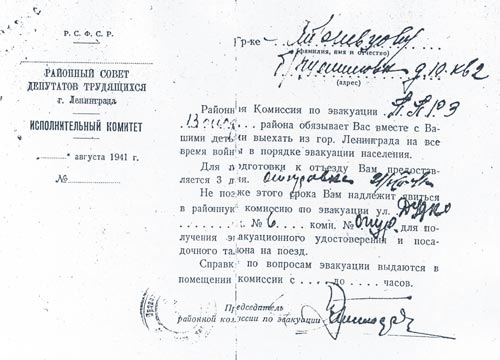 Р. С. Ф. С. Р.
РАЙОННЫЙ СОВЕТ
ДЕПУТАТОВ ТРУДЯЩИХСЯ
г. Ленинграда
ИСПОЛНИТЕЛЬНЫЙ КОМИТЕТ
" августа 1941 г.
№
Гр-ке
(фамилия, имя и отчество)
д. 10. кв 2
(адрес)
Районная Комиссия по эвакуации
района обязывает Вас вместе с Ва-
шими детьми выехать из гор. Ленинграда на все
время войны в порядке эвакуации населения.
Для подготовки к отъезду Вам предостав-
ляется 3 дня.
Не позже этого срока Вам надлежит явиться
в районную комиссию по эвакуации ул.
№ 6 комн. № для по-
лучения эвакуационного удостоверения и поса-
дочного талона на поезд.
Справки по вопросам эвакуации выдаются в
помещении комиссии с . . . . до . . . . часов.
Председатель
районной комиссии по эвакуации